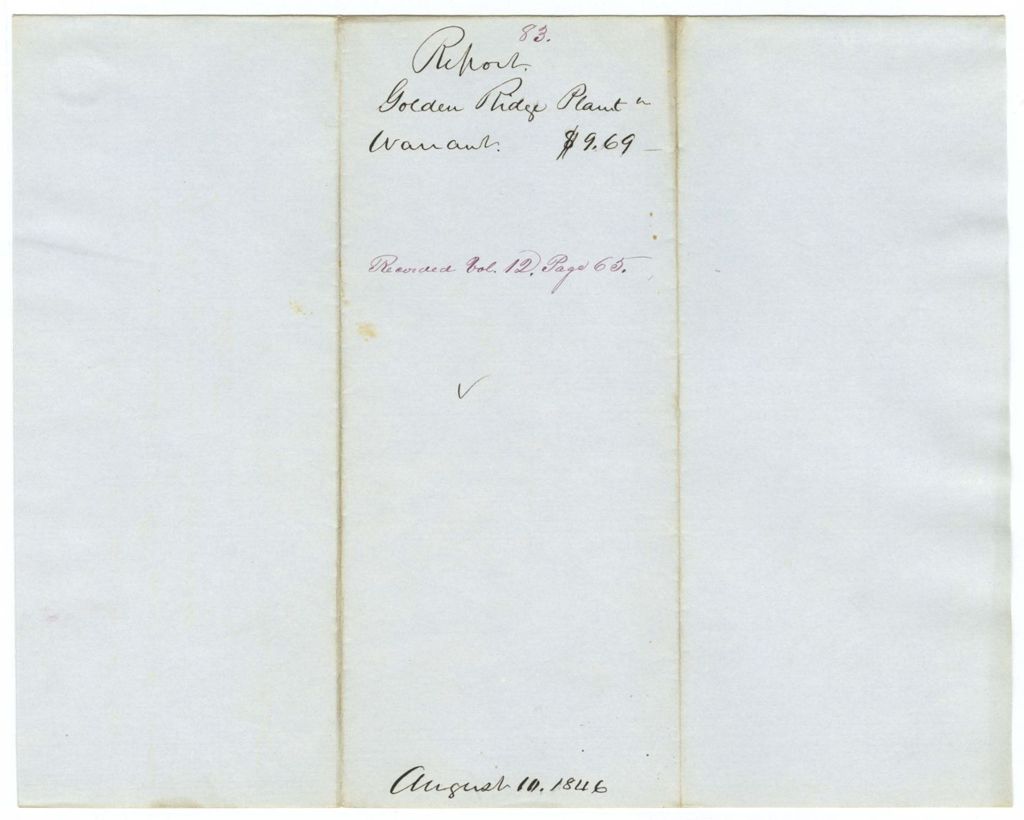 83.
Report.
Golden Ridge Plantn
Warrant. $9.69
Recorded Vol. 12, Page 65.
August 10. 1846